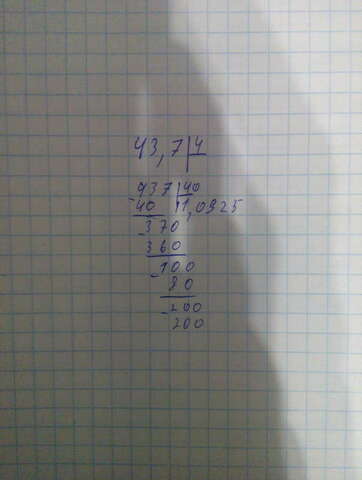 43,7 | 4
437 | 40
- 40 | 1,0925
- 370
360
- 100
80
- 200
200